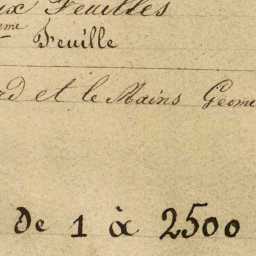 ux Feuilles
eme Feuille
rd et le Mains Geome
De 1 à 2500